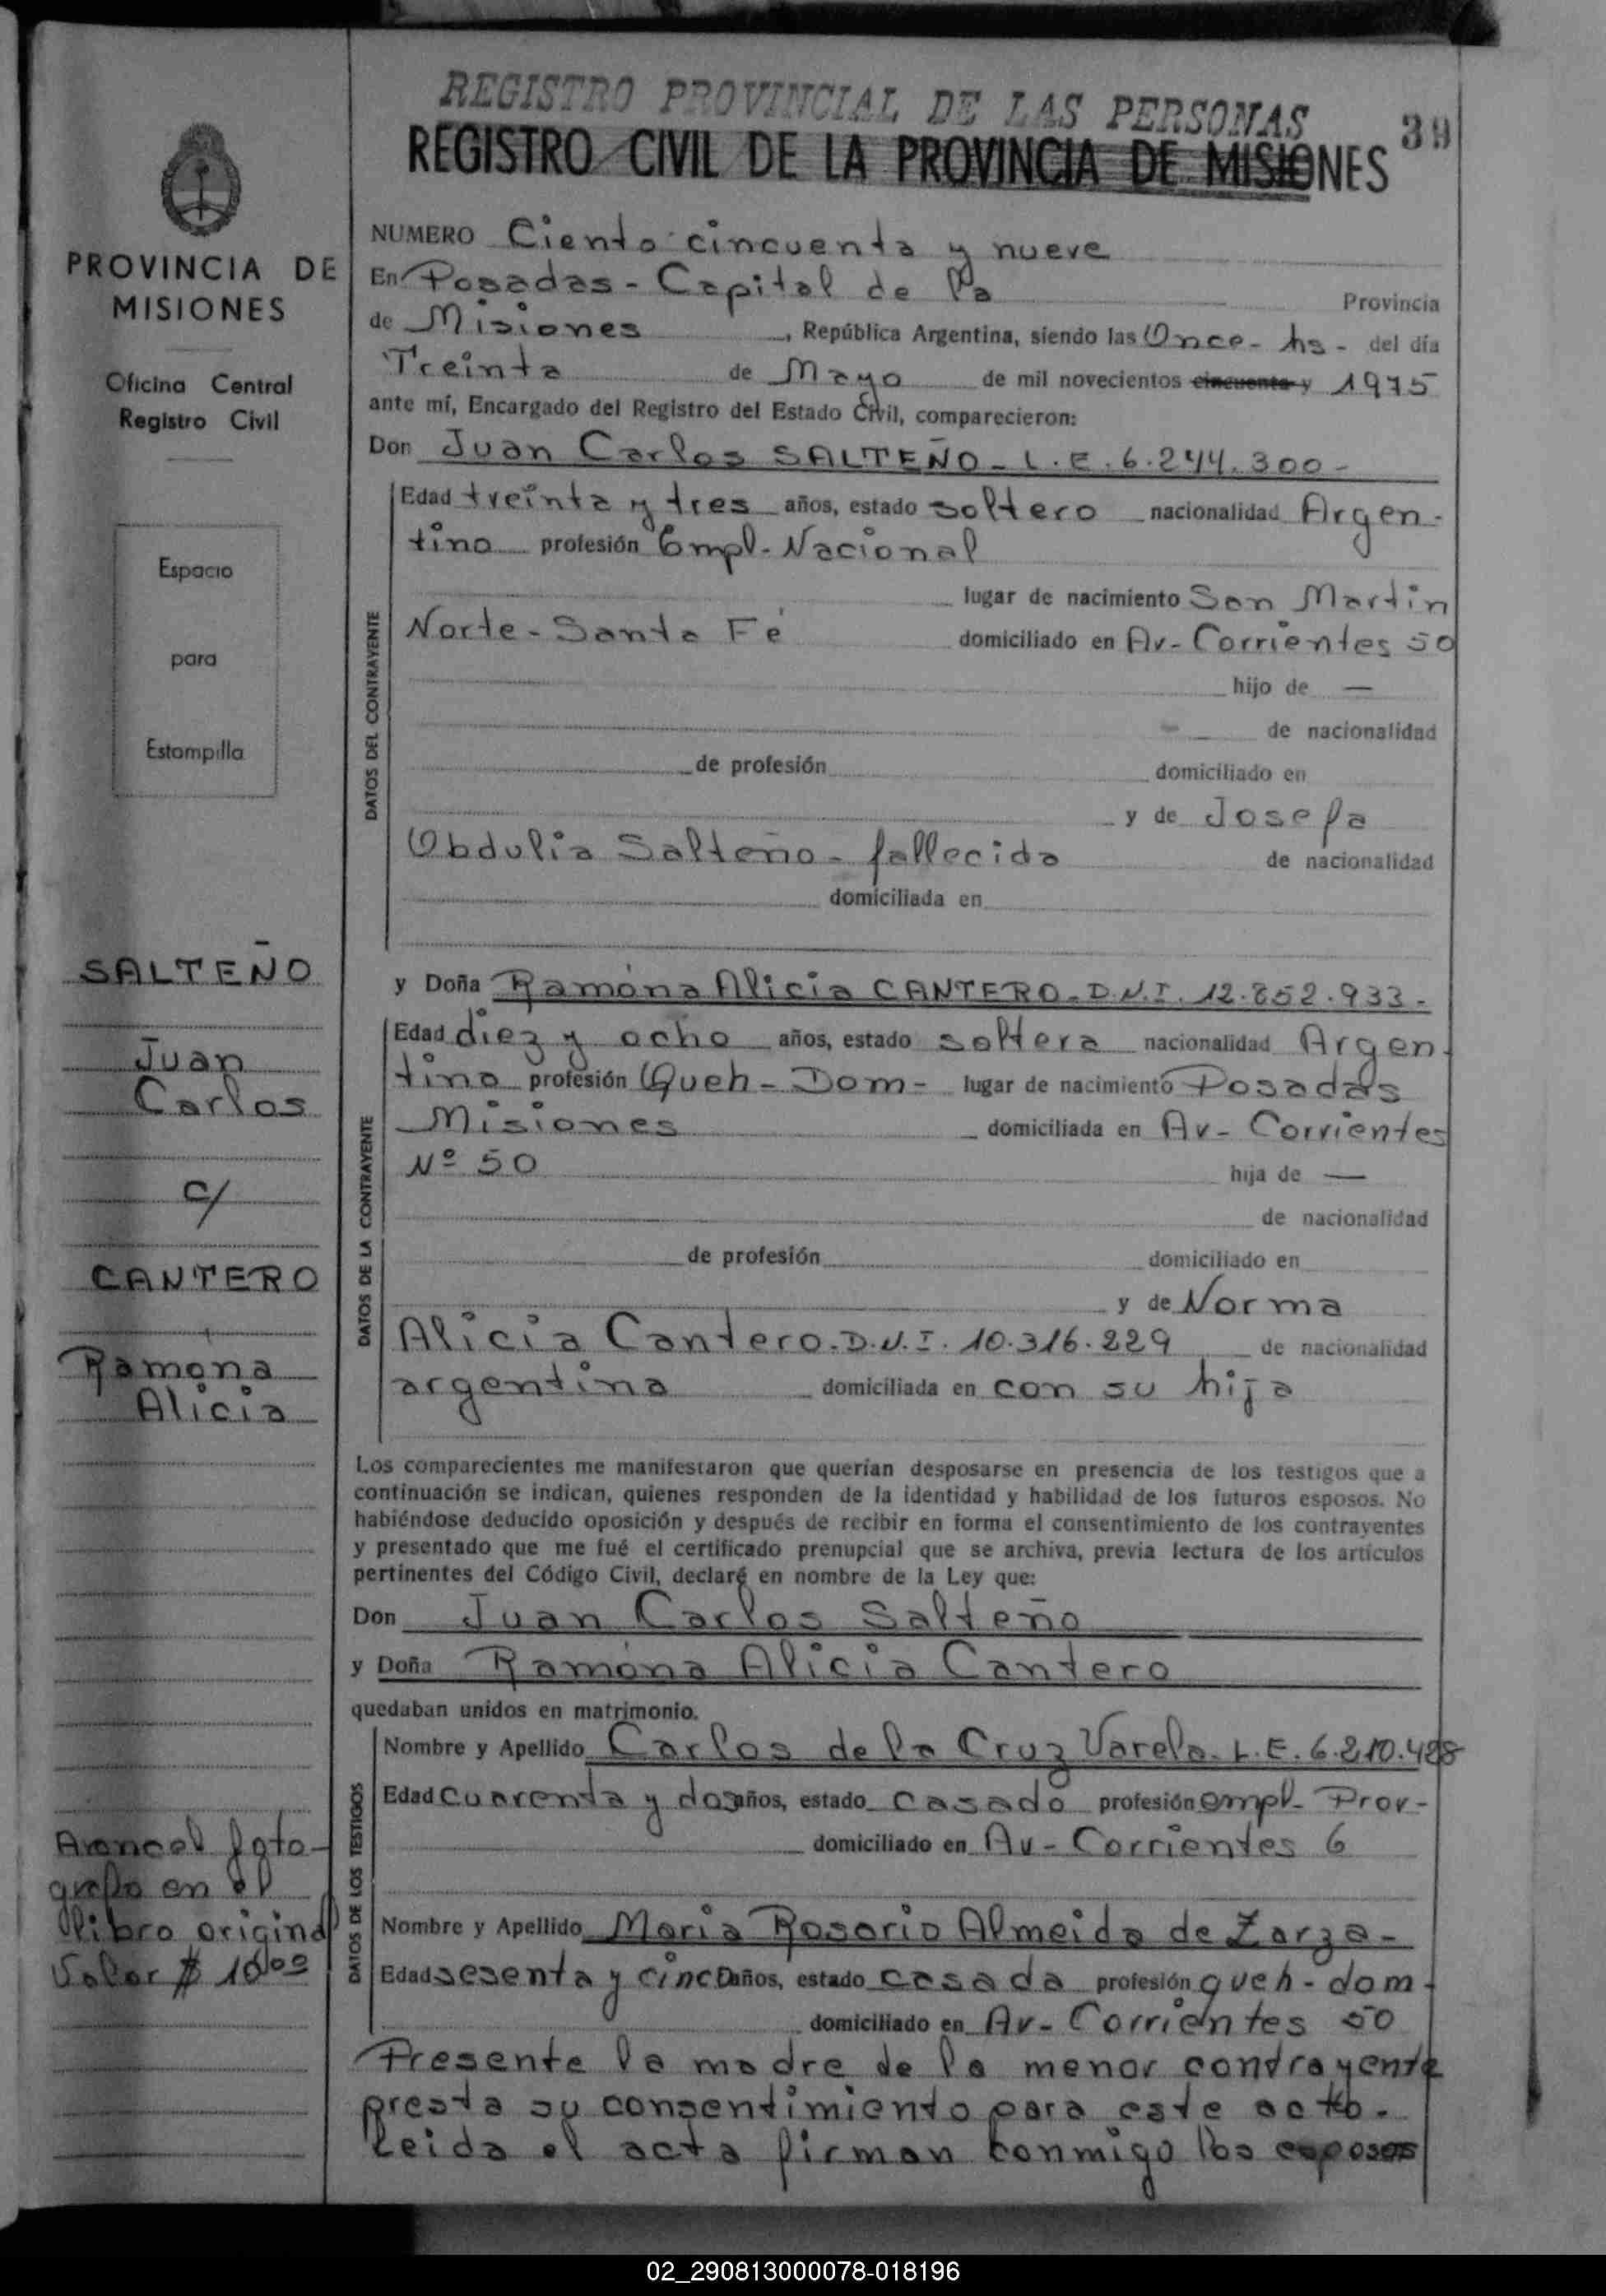 REGISTRO PROVINCIAL DE LAS PERSONAS
REGISTRO CIVIL DE LA PROVINCIA DE MISIONES
39
PROVINCIA DE
MISIONES
Oficina Central
Registro Civil
Espacio
para
Estampilla
SALTEÑO
Juan
Carlos
c/
CANTERO
Ramona
Alicia
Arancel foto-
grafo en el
libro original
Valor $ 10,00
NUMERO Ciento cincuenta y nueve
En Posadas - Capital de la Provincia
de Misiones, República Argentina, siendo las Once - hs - del día
Treinta de Mayo de mil novecientos cincuenta y 1975
ante mí, Encargado del Registro del Estado Civil, comparecieron:
Don Juan Carlos SALTEÑO - L.E. 6.244.300 -
Edad treinta y tres años, estado soltero nacionalidad Argen-
tino profesión Empl - Nacional
lugar de nacimiento San Martin
Norte - Santa Fé domiciliado en Av - Corrientes 50
hijo de —
de nacionalidad
de profesión domiciliado en
y de Josefa
Obdulia Salteño - fallecida de nacionalidad
domiciliada en
DATOS DEL CONTRAYENTE
y Doña Ramona Alicia CANTERO - D.N.I. 12.852.933 -
Edad diez y ocho años, estado soltera nacionalidad Argen-
tina profesión Queh - Dom - lugar de nacimiento Posadas
Misiones domiciliada en Av - Corrientes
Nº 50 hija de —
de nacionalidad
de profesión domiciliado en
y de Norma
Alicia Cantero - D.N.I. 10.316.229 de nacionalidad
argentina domiciliada en con su hija
DATOS DE LA CONTRAYENTE
Los comparecientes me manifestaron que querían desposarse en presencia de los testigos que a
continuación se indican, quienes responden de la identidad y habilidad de los futuros esposos. No
habiéndose deducido oposición y después de recibir en forma el consentimiento de los contrayentes
y presentado que me fué el certificado prenupcial que se archiva, previa lectura de los artículos
pertinentes del Código Civil, declaré en nombre de la Ley que:
Don Juan Carlos Salteño
y Doña Ramona Alicia Cantero
quedaban unidos en matrimonio.
Nombre y Apellido Carlos de la Cruz Varela - L.E. 6.210.428
Edad cuarenta y dos años, estado casado profesión empl - Prov -
domiciliado en Av - Corrientes 6
Nombre y Apellido Maria Rosario Almeida de Zarza -
Edad sesenta y cinco años, estado casada profesión queh - dom -
domiciliado en Av - Corrientes 50
DATOS DE LOS TESTIGOS
Presente la madre de la menor contrayente
presta su consentimiento para este acto -
Leida el acta firman conmigo los esposos
02_290813000078-018196